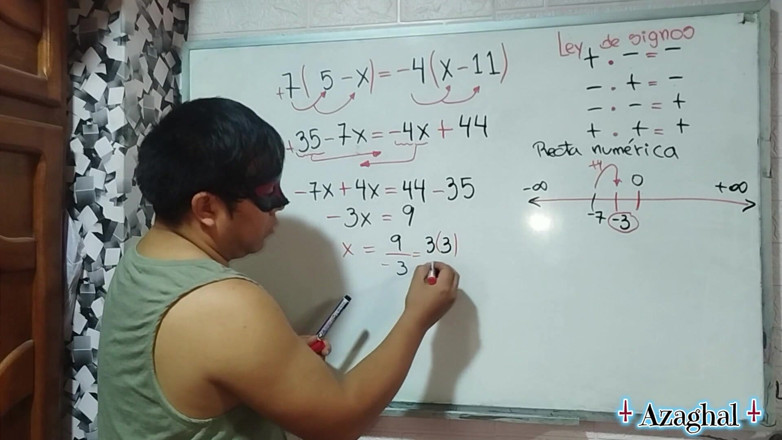 +7(5-x)=-4(x-11)
+35-7x=-4x+44
-7x+4x=44-35
-3x=9
x = 9/-3 = 3(3)
Ley de signos
+ . - = -
- . + = -
- . - = +
+ . + = +
Recta numérica
+4
-∞ 0 +∞
-7 -3
Azaghal